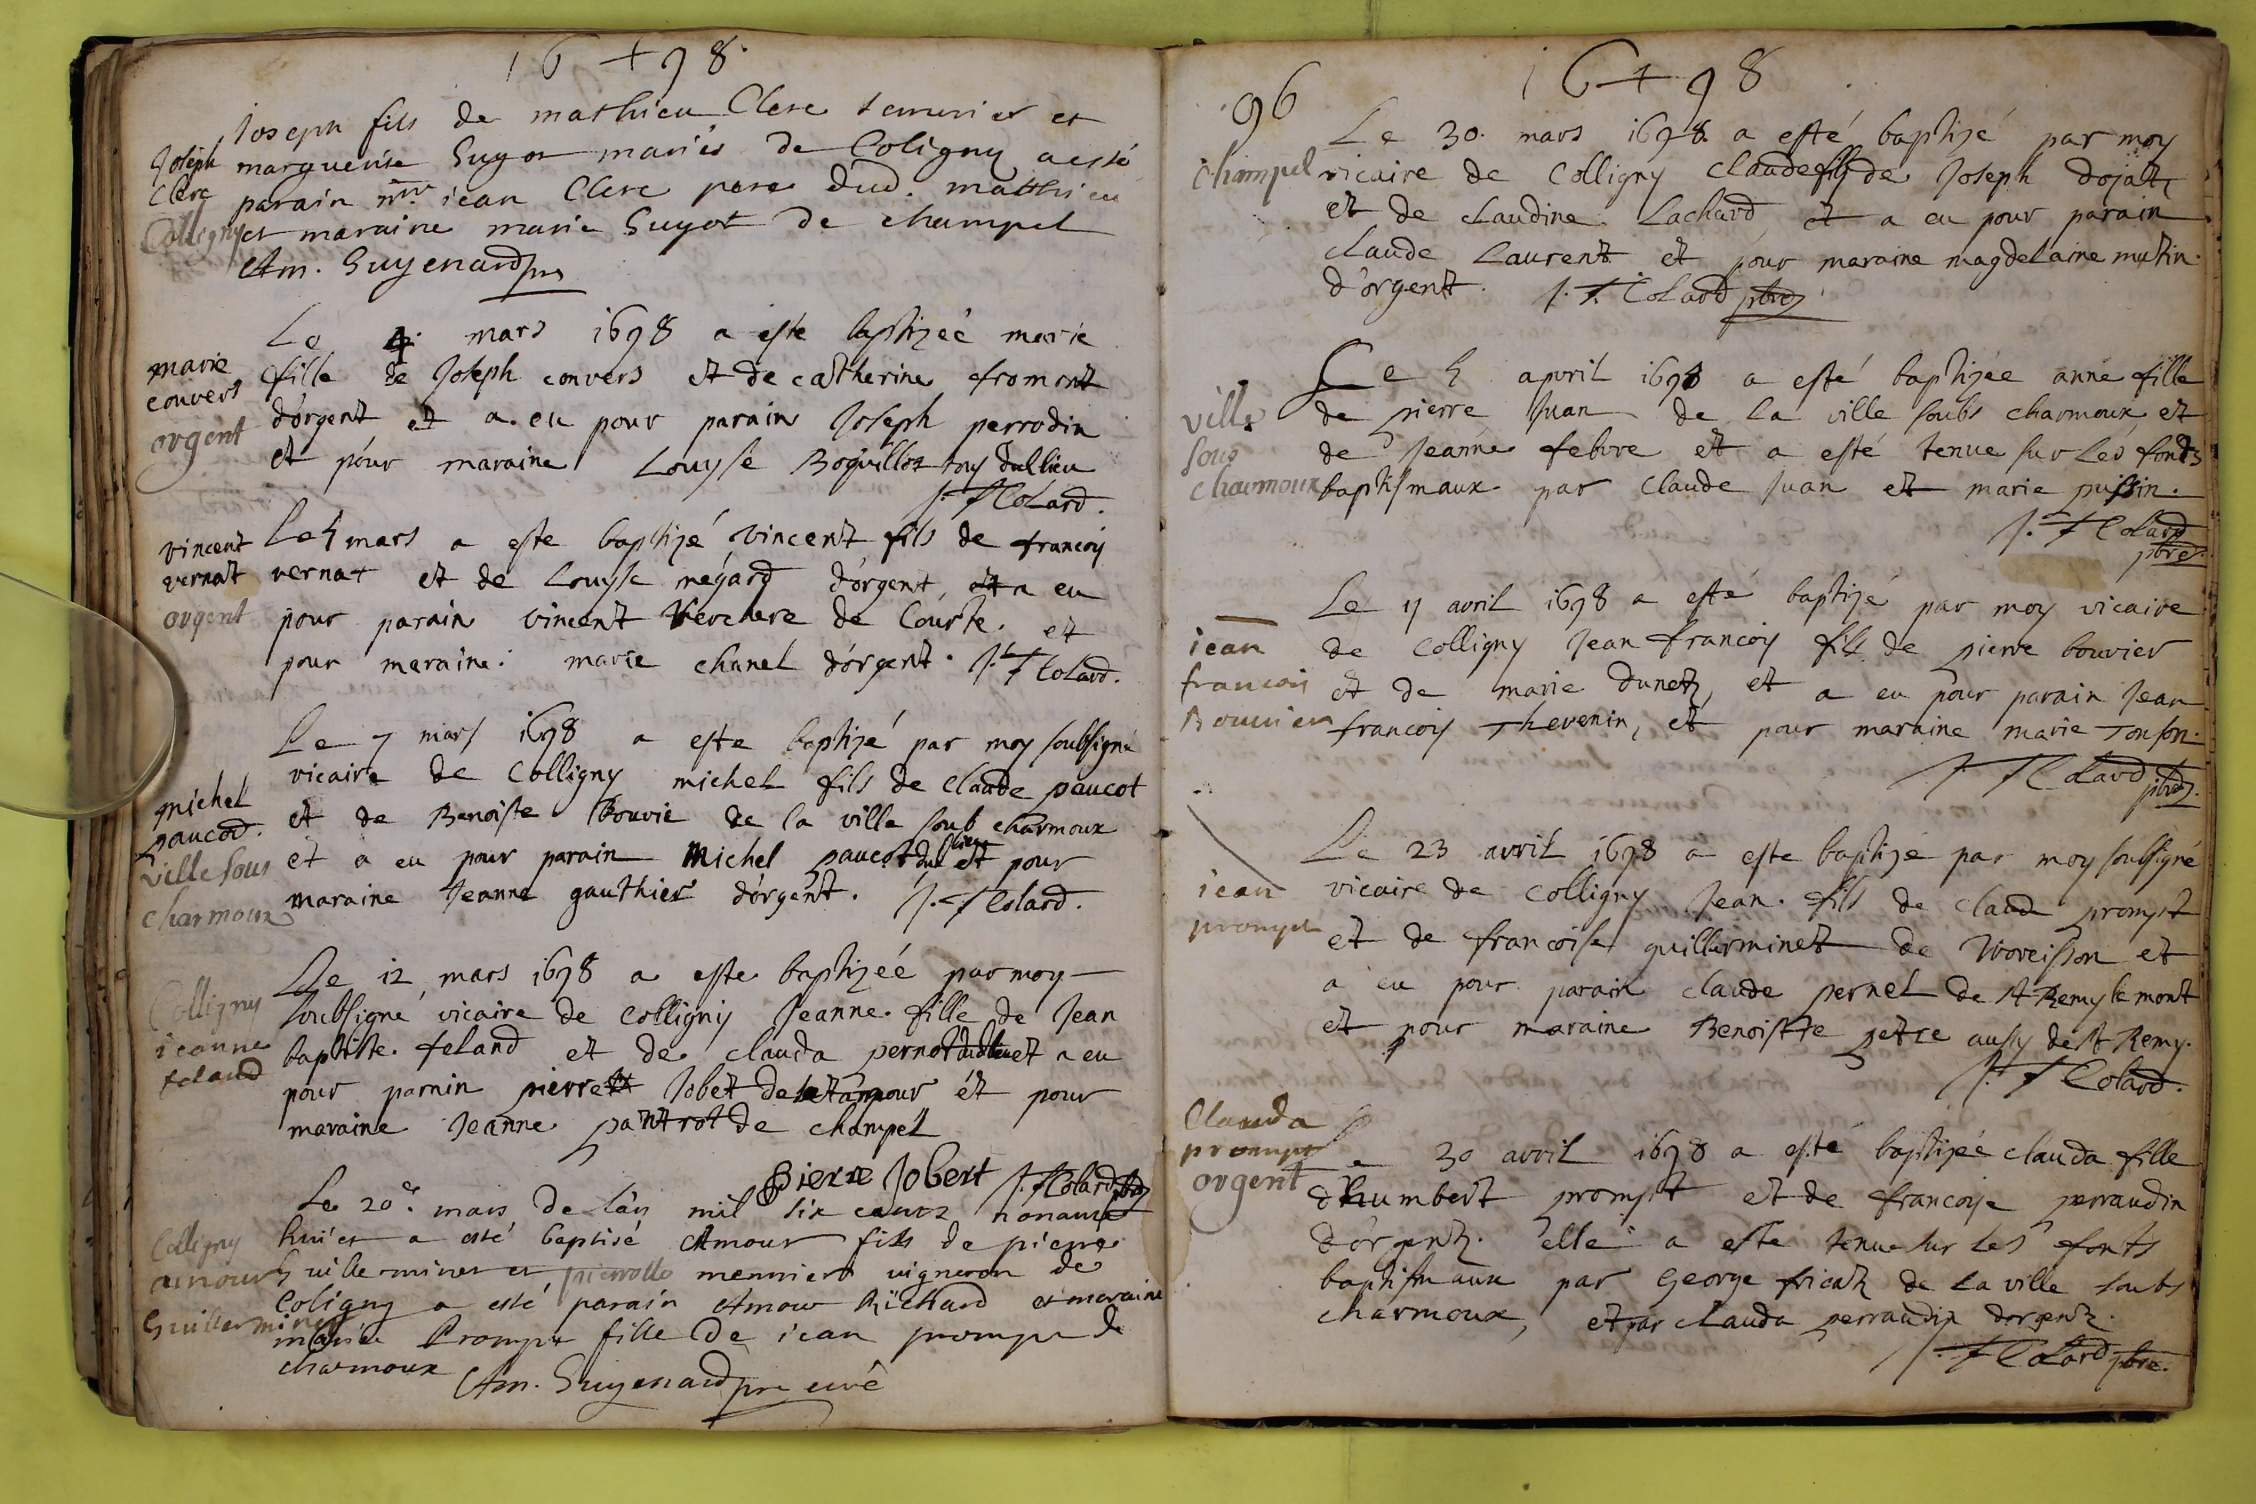 16+98.
Joseph fils de mathieu Clerc serrurier et
marguerite Guyot mariés de Coligny a esté
parain mre jean Clerc pere dud. matthieu
et maraine marie Guyot de champel
Am. Guyenard pre
Joseph
Clerc
Colligny
Le 4. mars 1698 a este baptizeé marie
fille de Joseph convers et de catherine froment
d'orgent et a eu pour parain Joseph perrodin
et pour maraine Louyse Boquillot tous dud lieu
J. F Colard.
marie
convers
orgent
Le 5 mars a este baptizé vincent fils de francois
vernat et de Louyse megard d'orgent, et a eu
pour parain vincent Verchere de Courte. et
pour maraine marie chanel d'orgent. J. F Colard.
vincent
vernat
orgent
Le 7 mars 1698 a este baptizé par moy soubsigné
vicaire de Colligny michel fils de Claude paucot
et de Benoiste Bouvie de la ville soub charmoux
et a eu pour parain Michel paucot dud lieu et pour
maraine Jeanne gauthier d'orgent. J. F Colard.
michel
paucod.
ville sous
charmoux
Le 12 mars 1698 a este baptizeé par moy
soubsigné vicaire de Colligny Jeanne fille de Jean
baptiste feland et de clauda pernot dud lieu et a eu
pour parain pierre Jobet de st amour et pour
maraine Jeanne pantrot de champel
Pierre Jobert J. F Colard pbre
Colligny
jeanne
feland
Le 20e. mars de l'an mil six cents nonante
huict a esté baptisé Amour fils de pierre
Guillerminet et pierrotte mennier vigneron de
Coligny a esté parain Amour Richard et maraine
marie Prompt fille de jean prompt de
charmoux Am. Guyenard pre curé
Colligny
amour
Guillerminet
96
16+98
Le 30. mars 1698 a esté baptizé par moy
vicaire de Colligny Claude fils de Joseph dojat
et de claudine Lachard, et a eu pour parain
claude Laurent et pour maraine magdelaine mutin
d'orgent. J. F. Colard pbre
champel
Le 5 apvril 1698 a esté baptizée anne fille
de pierre Juan de la ville soubs charmoux et
de Jeanne febvre et a esté tenue sur Les fonts
baptismaux par claude Juan et marie pussin.
J. F Colard
pbre
ville
sous
charmoux
Le 11 avril 1698 a esté baptizé par moy vicaire
de Colligny Jean francois fils de pierre bouvier
et de marie Dunet, et a eu pour parain Jean
francois Thevenin, et pour maraine marie Tonson.
J. F Colard pbre.
jean
francois
Bouvier
Le 23 avril 1698 a este baptizé par moy soubsigné
vicaire de Colligny Jean fils de claude prompt
et de francoise guillerminet de et
a eu pour parain claude pernet de st Remy le mont
et pour maraine Benoistte petre aussy de st Remy.
J. F Colard.
jean
prompt
Le 30 avril 1698 a esté baptizeé clauda fille
d'humbert prompt et de francoise perraudin
d'orgent. elle a este tenue sur Les fonts
baptismaux par George fricat de La ville soubs
charmoux, et par clauda perraudin dorgent.
J. F Colard pbre.
Clauda
prompt
orgent